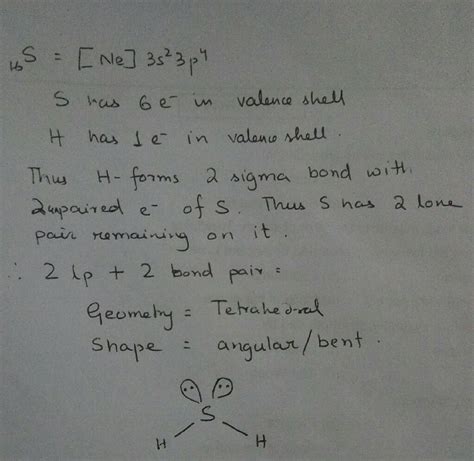 ₁₆S = [Ne] 3s² 3p⁴
S has 6 e⁻ in valence shell
H has 1 e⁻ in valence shell.
Thus H- forms 2 sigma bond with
2 unpaired e⁻ of S. Thus S has 2 lone
pair remaining on it.
∴ 2 lp + 2 bond pair =
Geometry = Tetrahedral
Shape = angular/bent.
S
H H